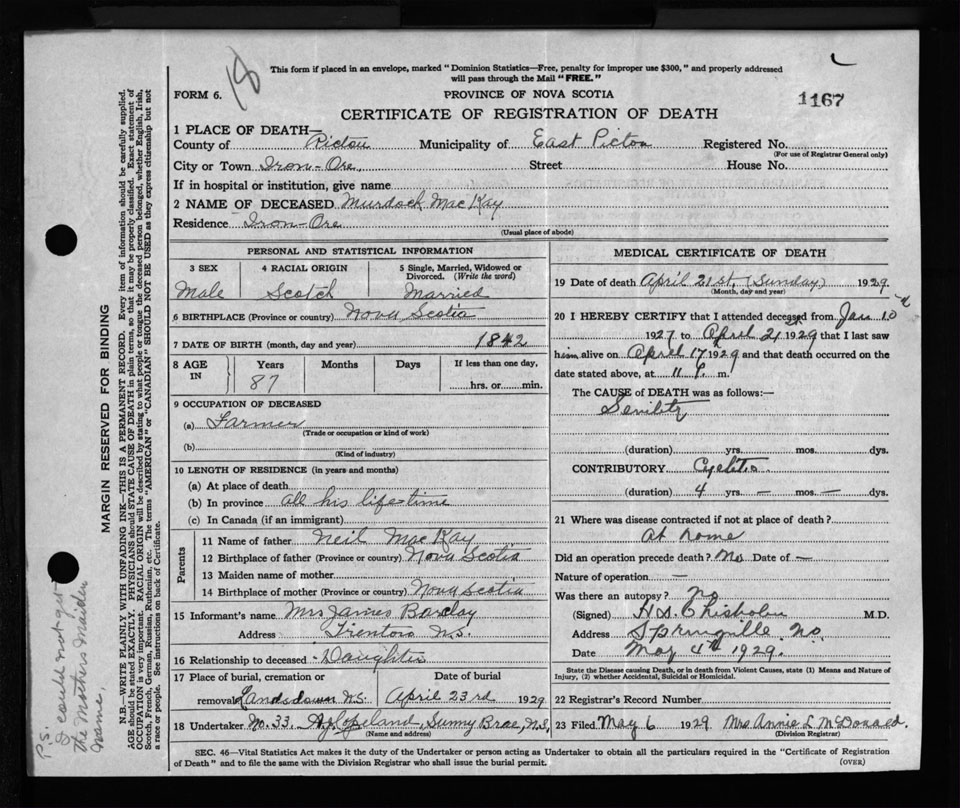 18
This form if placed in an envelope, marked "Dominion Statistics—Free, penalty for improper use $300," and properly addressed
will pass through the Mail "FREE."
FORM 6.
PROVINCE OF NOVA SCOTIA
1167
CERTIFICATE OF REGISTRATION OF DEATH
1 PLACE OF DEATH—
County of Pictou Municipality of East Pictou Registered No.
(For use of Registrar General only)
City or Town Iron-Ore, Street House No.
If in hospital or institution, give name
2 NAME OF DECEASED Murdoch MacKay
Residence Iron-Ore
(Usual place of abode)
PERSONAL AND STATISTICAL INFORMATION
3 SEX 4 RACIAL ORIGIN 5 Single, Married, Widowed or
Divorced. (Write the word)
Male Scotch Married
6 BIRTHPLACE (Province or country) Nova Scotia
7 DATE OF BIRTH (month, day and year) 1842
8 AGE IN Years Months Days If less than one day,
87 hrs. or min.
9 OCCUPATION OF DECEASED
(a) Farmer
(Trade or occupation or kind of work)
(b)
(Kind of industry)
10 LENGTH OF RESIDENCE (in years and months)
(a) At place of death
(b) In province all his life-time
(c) In Canada (if an immigrant)
Parents
11 Name of father Neil MacKay
12 Birthplace of father (Province or country) Nova Scotia
13 Maiden name of mother
14 Birthplace of mother (Province or country) Nova Scotia
15 Informant's name Mrs James Barclay
Address Trenton N.S.
16 Relationship to deceased Daughter
17 Place of burial, cremation or Date of burial
removal Landsdown N.S. April 23rd 1929
18 Undertaker No. 33. Copeland, Sunny Brae, N.S.
(Name and address)
MEDICAL CERTIFICATE OF DEATH
19 Date of death April 21st, (Sunday) 1929
(Month, day and year)
20 I HEREBY CERTIFY that I attended deceased from Jan 10
1927 to April 21st 1929 that I last saw
him alive on April 17th 1929 and that death occurred on
date stated above, at 11 m.
The CAUSE of DEATH was as follows:—
Senility
(duration) yrs. mos. dys.
CONTRIBUTORY
(duration) 4 yrs. — mos. — dys.
21 Where was disease contracted if not at place of death?
At home
Did an operation precede death? No Date of —
Nature of operation —
Was there an autopsy? No
(Signed) Chisholm M.D.
Address Springville N.S.
Date May 4th 1929.
State the Disease causing Death, or in death from Violent Causes, state (1) Means and Nature of
Injury, (2) whether Accidental, Suicidal or Homicidal.
22 Registrar's Record Number
23 Filed May 6 1929 Mrs Annie L McDonald.
(Division Registrar)
SEC. 46—Vital Statistics Act makes it the duty of the Undertaker or person acting as Undertaker to obtain all the particulars required in the "Certificate of Registration
of Death" and to file the same with the Division Registrar who shall issue the burial permit.
(OVER)
MARGIN RESERVED FOR BINDING
N.B.—WRITE PLAINLY WITH UNFADING INK—THIS IS A PERMANENT RECORD. Every item of information should be carefully supplied.
AGE should be stated EXACTLY. PHYSICIANS should STATE CAUSE OF DEATH in plain terms, so that it may be properly classified. Exact statement of
OCCUPATION is very important. RACIAL ORIGIN will be described by stating to what people or tongue the deceased person belonged, whether English, Irish,
Scotch, French, German, Russian, Ruthenian, etc. The terms "AMERICAN" or "CANADIAN" SHOULD NOT BE USED as they express citizenship but not
a race or people. See instructions on back of Certificate.
P.S.
I could not get
the Mothers Maiden
Name.